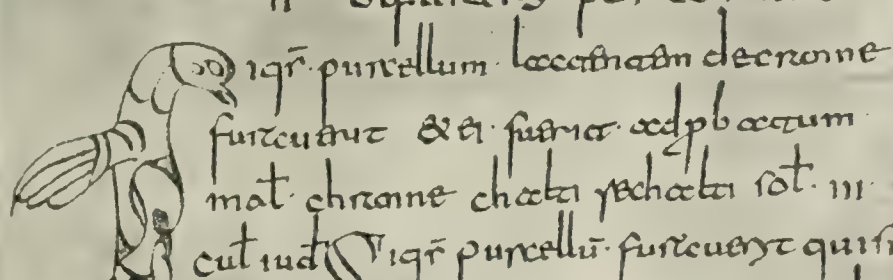 iqr̄· purcellum· lactantem decranne
furauerit & ei· fuerit· adpbatum·
mal̄· chranne chalti rechalti sol̄· iii·
cul̄ iud̄ Siqr̄ purcellū· furauerit quisi